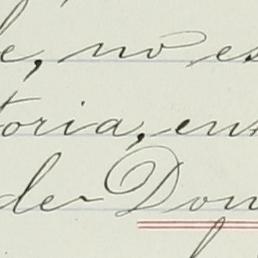 e, no es
toria, ent
de Don